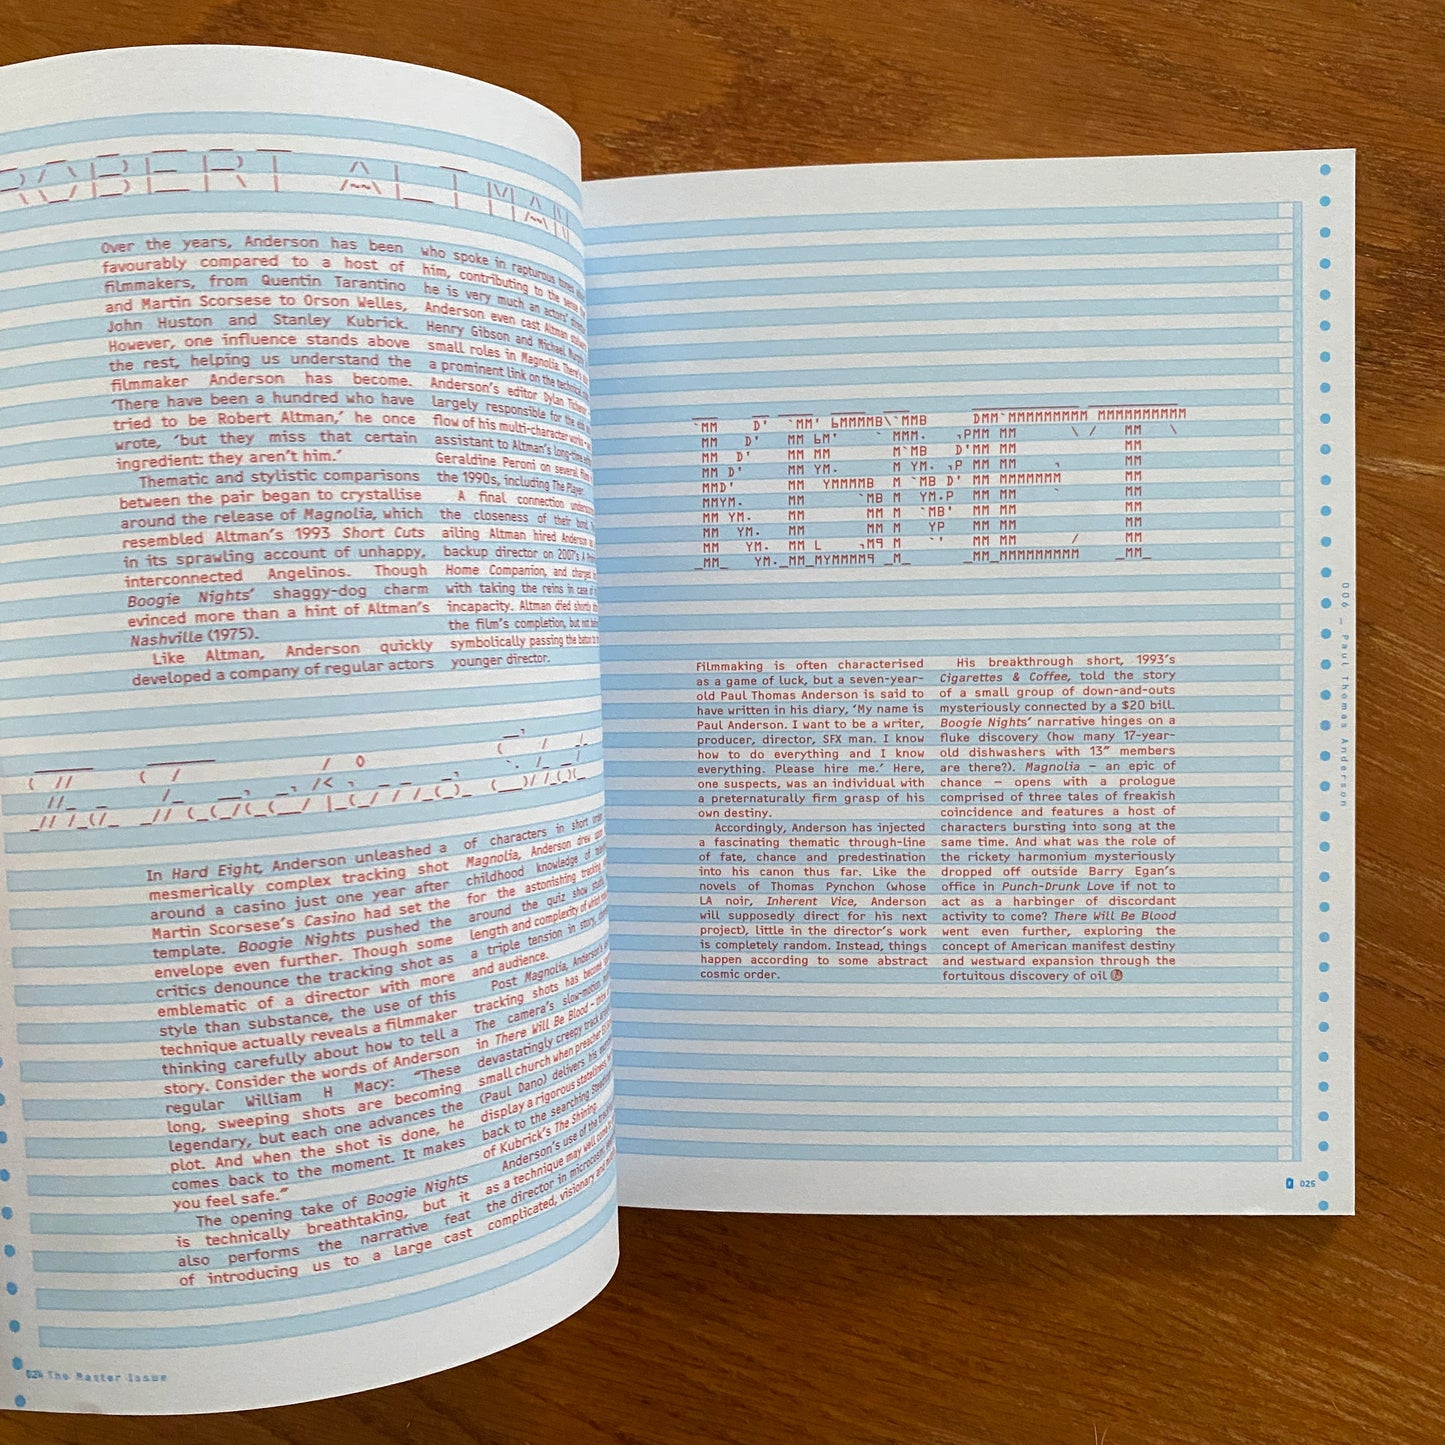 ROBERT ALTMAN
Over the years, Anderson has been
favourably compared to a host of
filmmakers, from Quentin Tarantino
and Martin Scorsese to Orson Welles,
John Huston and Stanley Kubrick.
However, one influence stands above
the rest, helping us understand the
filmmaker Anderson has become.
‘There have been a hundred who have
tried to be Robert Altman,’ he once
wrote, ‘but they miss that certain
ingredient: they aren’t him.’
Thematic and stylistic comparisons
between the pair began to crystallise
around the release of Magnolia, which
resembled Altman’s 1993 Short Cuts
in its sprawling account of unhappy,
interconnected Angelinos. Though
Boogie Nights’ shaggy-dog charm
evinced more than a hint of Altman’s
Nashville (1975).
Like Altman, Anderson quickly
developed a company of regular actors
who spoke in rapturous tones
him, contributing to the sense
he is very much an actors’
Anderson even cast Altman
Henry Gibson and Michael Murphy
small roles in Magnolia. There’s
a prominent link on the technical
Anderson’s editor Dylan Tichenor
largely responsible for the
flow of his multi-character works
assistant to Altman’s long-time
Geraldine Peroni on several films
the 1990s, including The Player.
A final connection
the closeness of their bond.
ailing Altman hired Anderson as
backup director on 2007’s A
Home Companion, and charged
with taking the reins in case of
incapacity. Altman died shortly
the film’s completion, but not
symbolically passing the baton to
younger director.
The Tracking
In Hard Eight, Anderson unleashed a
mesmerically complex tracking shot
around a casino just one year after
Martin Scorsese’s Casino had set the
template. Boogie Nights pushed the
envelope even further. Though some
critics denounce the tracking shot as
emblematic of a director with more
style than substance, the use of this
technique actually reveals a filmmaker
thinking carefully about how to tell a
story. Consider the words of Anderson
regular William H Macy: “These
long, sweeping shots are becoming
legendary, but each one advances the
plot. And when the shot is done, he
comes back to the moment. It makes
you feel safe.”
The opening take of Boogie Nights
is technically breathtaking, but it
also performs the narrative feat
of introducing us to a large cast
of characters in short order.
Magnolia, Anderson drew
childhood knowledge of
for the astonishing tracking
around the quiz show
length and complexity of which
a triple tension in story,
and audience.
Post Magnolia, Anderson’s
tracking shots has become
The camera’s slow-motion
in There Will Be Blood – think
devastatingly creepy track
small church when preacher
(Paul Dano) delivers his
display a rigorous stateliness
back to the searching
of Kubrick’s The Shining.
Anderson’s use of the tracking
as a technique may well come to
the director in microcosm:
complicated, visionary and
024 The Raster Issue
KISMET
Filmmaking is often characterised
as a game of luck, but a seven-year-
old Paul Thomas Anderson is said to
have written in his diary, ‘My name is
Paul Anderson. I want to be a writer,
producer, director, SFX man. I know
how to do everything and I know
everything. Please hire me.’ Here,
one suspects, was an individual with
a preternaturally firm grasp of his
own destiny.
Accordingly, Anderson has injected
a fascinating thematic through-line
of fate, chance and predestination
into his canon thus far. Like the
novels of Thomas Pynchon (whose
LA noir, Inherent Vice, Anderson
will supposedly direct for his next
project), little in the director’s work
is completely random. Instead, things
happen according to some abstract
cosmic order.
His breakthrough short, 1993’s
Cigarettes & Coffee, told the story
of a small group of down-and-outs
mysteriously connected by a $20 bill.
Boogie Nights’ narrative hinges on a
fluke discovery (how many 17-year-
old dishwashers with 13” members
are there?). Magnolia – an epic of
chance – opens with a prologue
comprised of three tales of freakish
coincidence and features a host of
characters bursting into song at the
same time. And what was the role of
the rickety harmonium mysteriously
dropped off outside Barry Egan’s
office in Punch-Drunk Love if not to
act as a harbinger of discordant
activity to come? There Will Be Blood
went even further, exploring the
concept of American manifest destiny
and westward expansion through the
fortuitous discovery of oil
006 — Paul Thomas Anderson
025